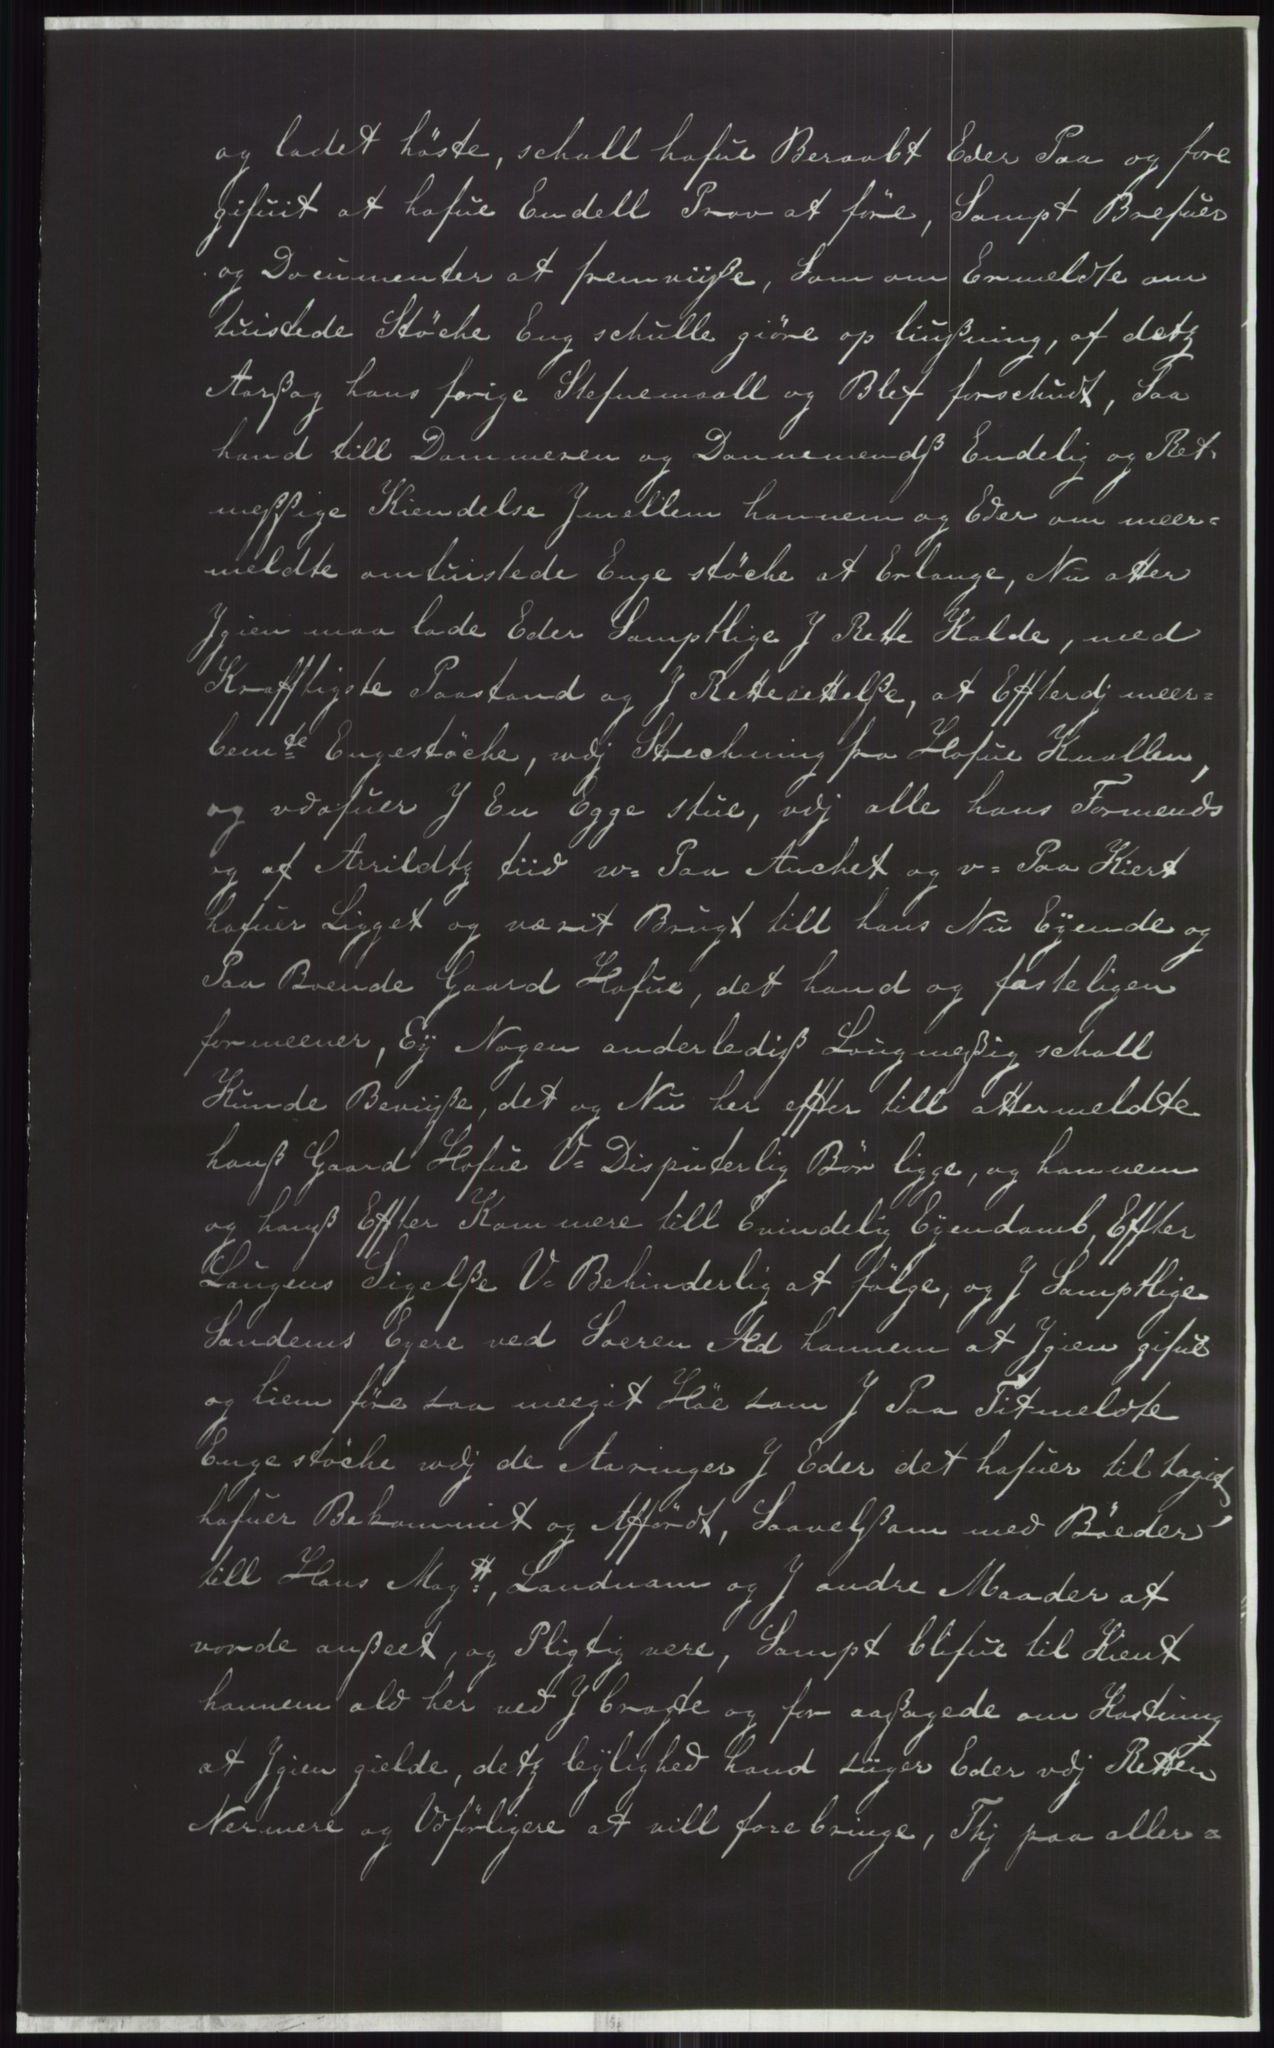 og ladet höste, schall hafue Beraabt Eder Paa og fore
gifuit at hafue Endell Prov at före, Sampt Brefuer
og Documenter at fremviiße, Som om Ermeldte om
tuistede Stöche Eng schulle giöre op liußning, af detz
Aarßag hans forige Stefnemaall og Blef forschudt, Saa
hand till Dommeren og Dannemendß Endelig og Ret-
meßsige Kiendelse Jmellem hannem og Eder om meer=
meldte omtuistede Enge stöche at Erlange, Nu atter
Jgien maa lade Eder Samptlige J Rette Kalde, med
Krafftigste Paastand og J Rettesettelße, at Effterdj meer=
bemte Engestöche, wdj Strechning fra Hofue Knallen,
og vdofuer J En Egge stue, vdj alle hans Formends
og af Arrildtz tiid w= Paa Anchet og v= Paa Kiert
hafuer Ligget og værit Brugt till hans Nu Eÿende og
Paa Boende Gaard Hofue, det hand og fasteligen
formeener, Eÿ Nogen anderlediß Lougmeßig schall
Kunde Beviiße, det og Nu her effter till attermeldte
hanß Gaard Hofue V= Disputerlig Bör ligge, og hannem
og hanß Effter Kommere till Evindelig Eÿendomb, Effter
Laugens Sigelße V= Behinderlig at fölge, og J Samptlige
Sandems Eyere ved Soeren Æd hannem at Jgien gifue
og hiem före saa meegit Höe som J Paa Titmeldte
Enge stöche wdj de Aaringer J Eder det hafuer til tagit
hafuer Bekommit og Affördt, Saavelßom med Böeder
till Hans Maytt, Landnam og J andre Maader at
vorde anßeet, og Pligtig vere, Sampt blifue til Kient
hannem ald her ved J bragte og for aaßagede om Kostning
at Jgien gielde, detz leÿlighed hand suger Eder vdj Retten
Nermere og Vdförligere at vill forebringe, Thj paa aller=